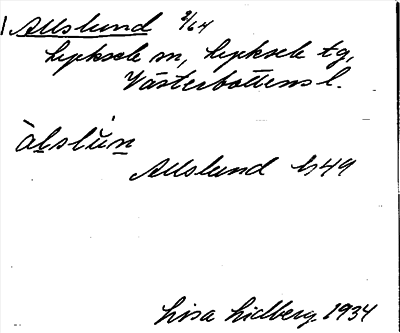 Allslund 2/64
Lycksele sn, Lycksele tg,
Västerbottens l.
àlslŭ́n
Allslund h49
Lisa Lidberg 1934